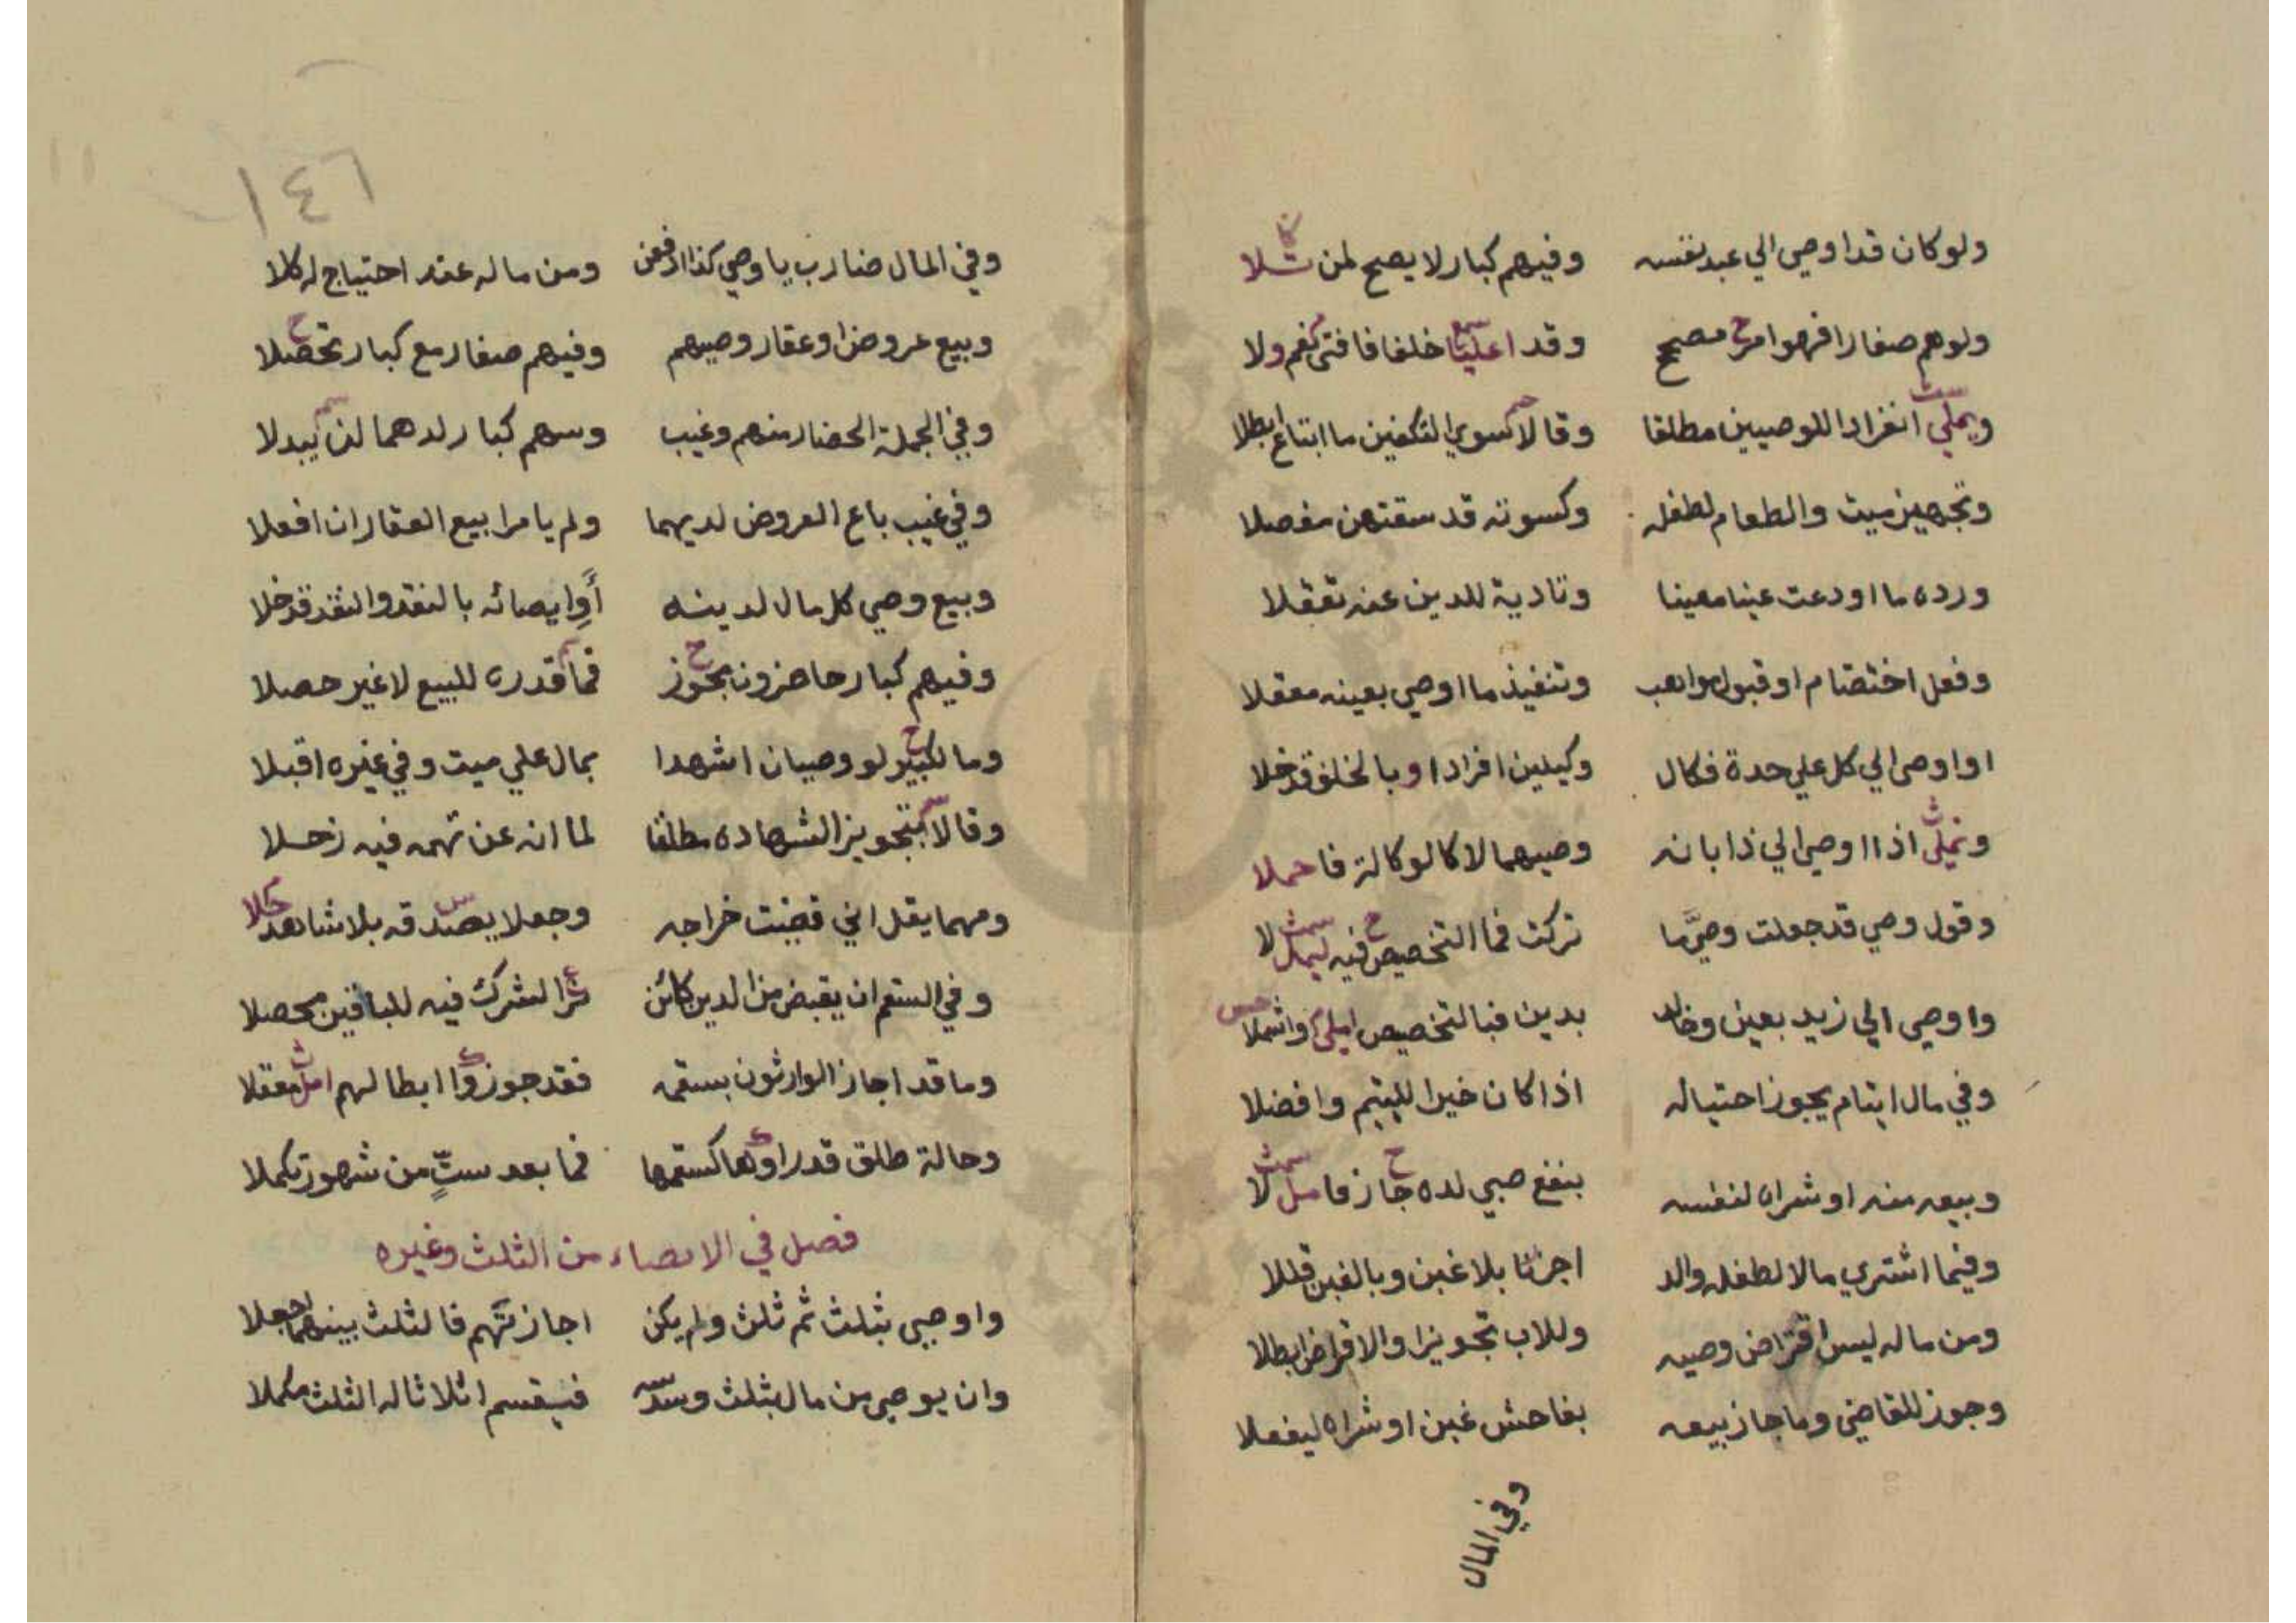 ولو كان قد اوصي الي عبد نفسه وفيهم كبار لا يصح لمن تلا
ولو هم صغارا فهو امر مصحح وقد اعليا خلفا فافتى نعم ولا
ويملي انفرادا للوصيين مطلقا وقالا سوي التكفين ما ابتاع ابطلا
وتجهيز ميت والطعام لطفله وكسوته قد سقتهن مفصلا
ورده ما اودعت عينا معينا وتادية للدين عنه تعقلا
وفعل اختصام او قبول مواهب وتنفيذ ما اوصي بعينه معقلا
او اوصى الي كل علي حدة فكال وكيلين افرادا وبالخلف قد خلا
ونملي اذا اوصي الي ذا بانه وصيهما لا كالوكالة فاحملا
وقول وصي قد جعلت وصي ما تركت فما التخصيص فيه ليمل لا
واوصي الي زيد بعين وخالد بدين فبالتخصيص املي واشملا
وفي مال ايتام يجوز احتياله اذا كان خيرا لليتيم وافضلا
وبيعه منه او شراه لنفسه بنفع صبي لده جاز فامل لا
وفيما اشتري مالا لطفله والد اجزنا بلا غبن وبالغبن قللا
ومن ماله ليس اقتراض وصيه وللاب تجويزا والاقراض ابطلا
وجوز للقاضي وما جاز بيعه بفاحش غبن او شراه ليفعلا
وفي المال
١٤٦
وفي المال ضارب يا وصي كذا ادفعن ومن ماله عند احتياج له كلا
وبيع عروض او عقار وصيهم وفيهم صغار مع كبار تحصلا
وفي الجملة الحضار منهم وغيب وسهم كبار لدهما لن يبدلا
وفي غيب باع العروض لديهما ولم يامرا بيع العقار ان افعلا
وبيع وصي كل مال لدينه أو ايصائه بالنقد والنقد قد خلا
وفيهم كبار حاضرون يجوز فما قدره للبيع لا غير حصلا
وما لكبير لو وصيان اشهدا بمال علي ميت وفي غيره اقبلا
وقالا بتجويز الشهاده مطلقا لما انه عن تهمه فيه زحلا
ومهما يقل اني قضيت خراجه وجعلا يصدقه بلا شاهد حلا
وفي السقم ان يقبض من الدين كائن ترا الشرك فيه للباقين محصلا
وما قد اجاز الوارثون بسقمه فقد جوزوا ابطالهم امل معقلا
وحالة طلق قد راوها كسقمها فما بعد ستٍّ من شهور تكملا
فصل في الايصاء من الثلث وغيره
واوصي بثلث ثم ثلث ولم يكن اجازتهم فالثلث بينهما اجعلا
وان يوصي من مال بثلث وسدسه فيقسم اثلاثا له الثلث مكملا